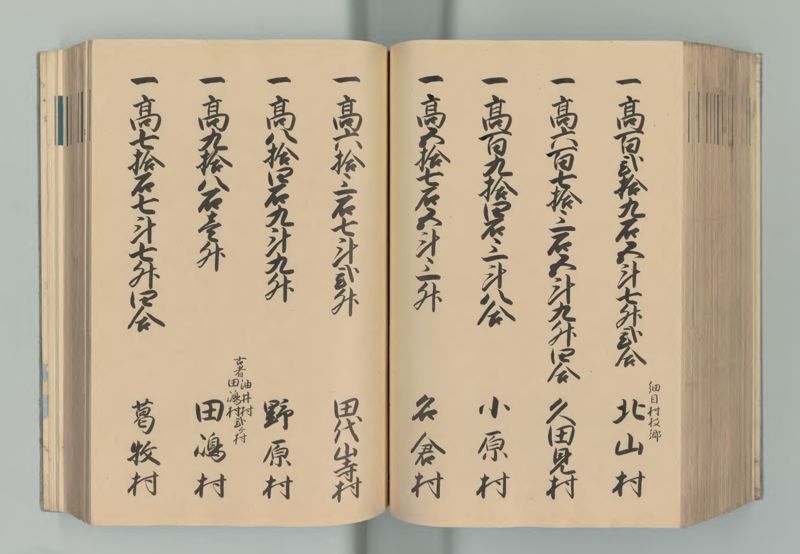 一高百弐拾九石五斗七升弐合
細目村枝郷
北山村
一高六百七拾三石五斗九升四合
久田見村
一高百九拾四石三斗八合
小原村
一高五拾七石五斗三升
名倉村
一高六拾三石七斗弐升
田代山寺村
一高八拾四石九斗九升
野原村
一高九拾八石壱升
古者油井村
田嶋村弐ケ村
田嶋村
一高七拾石七斗七升四合
葛牧村